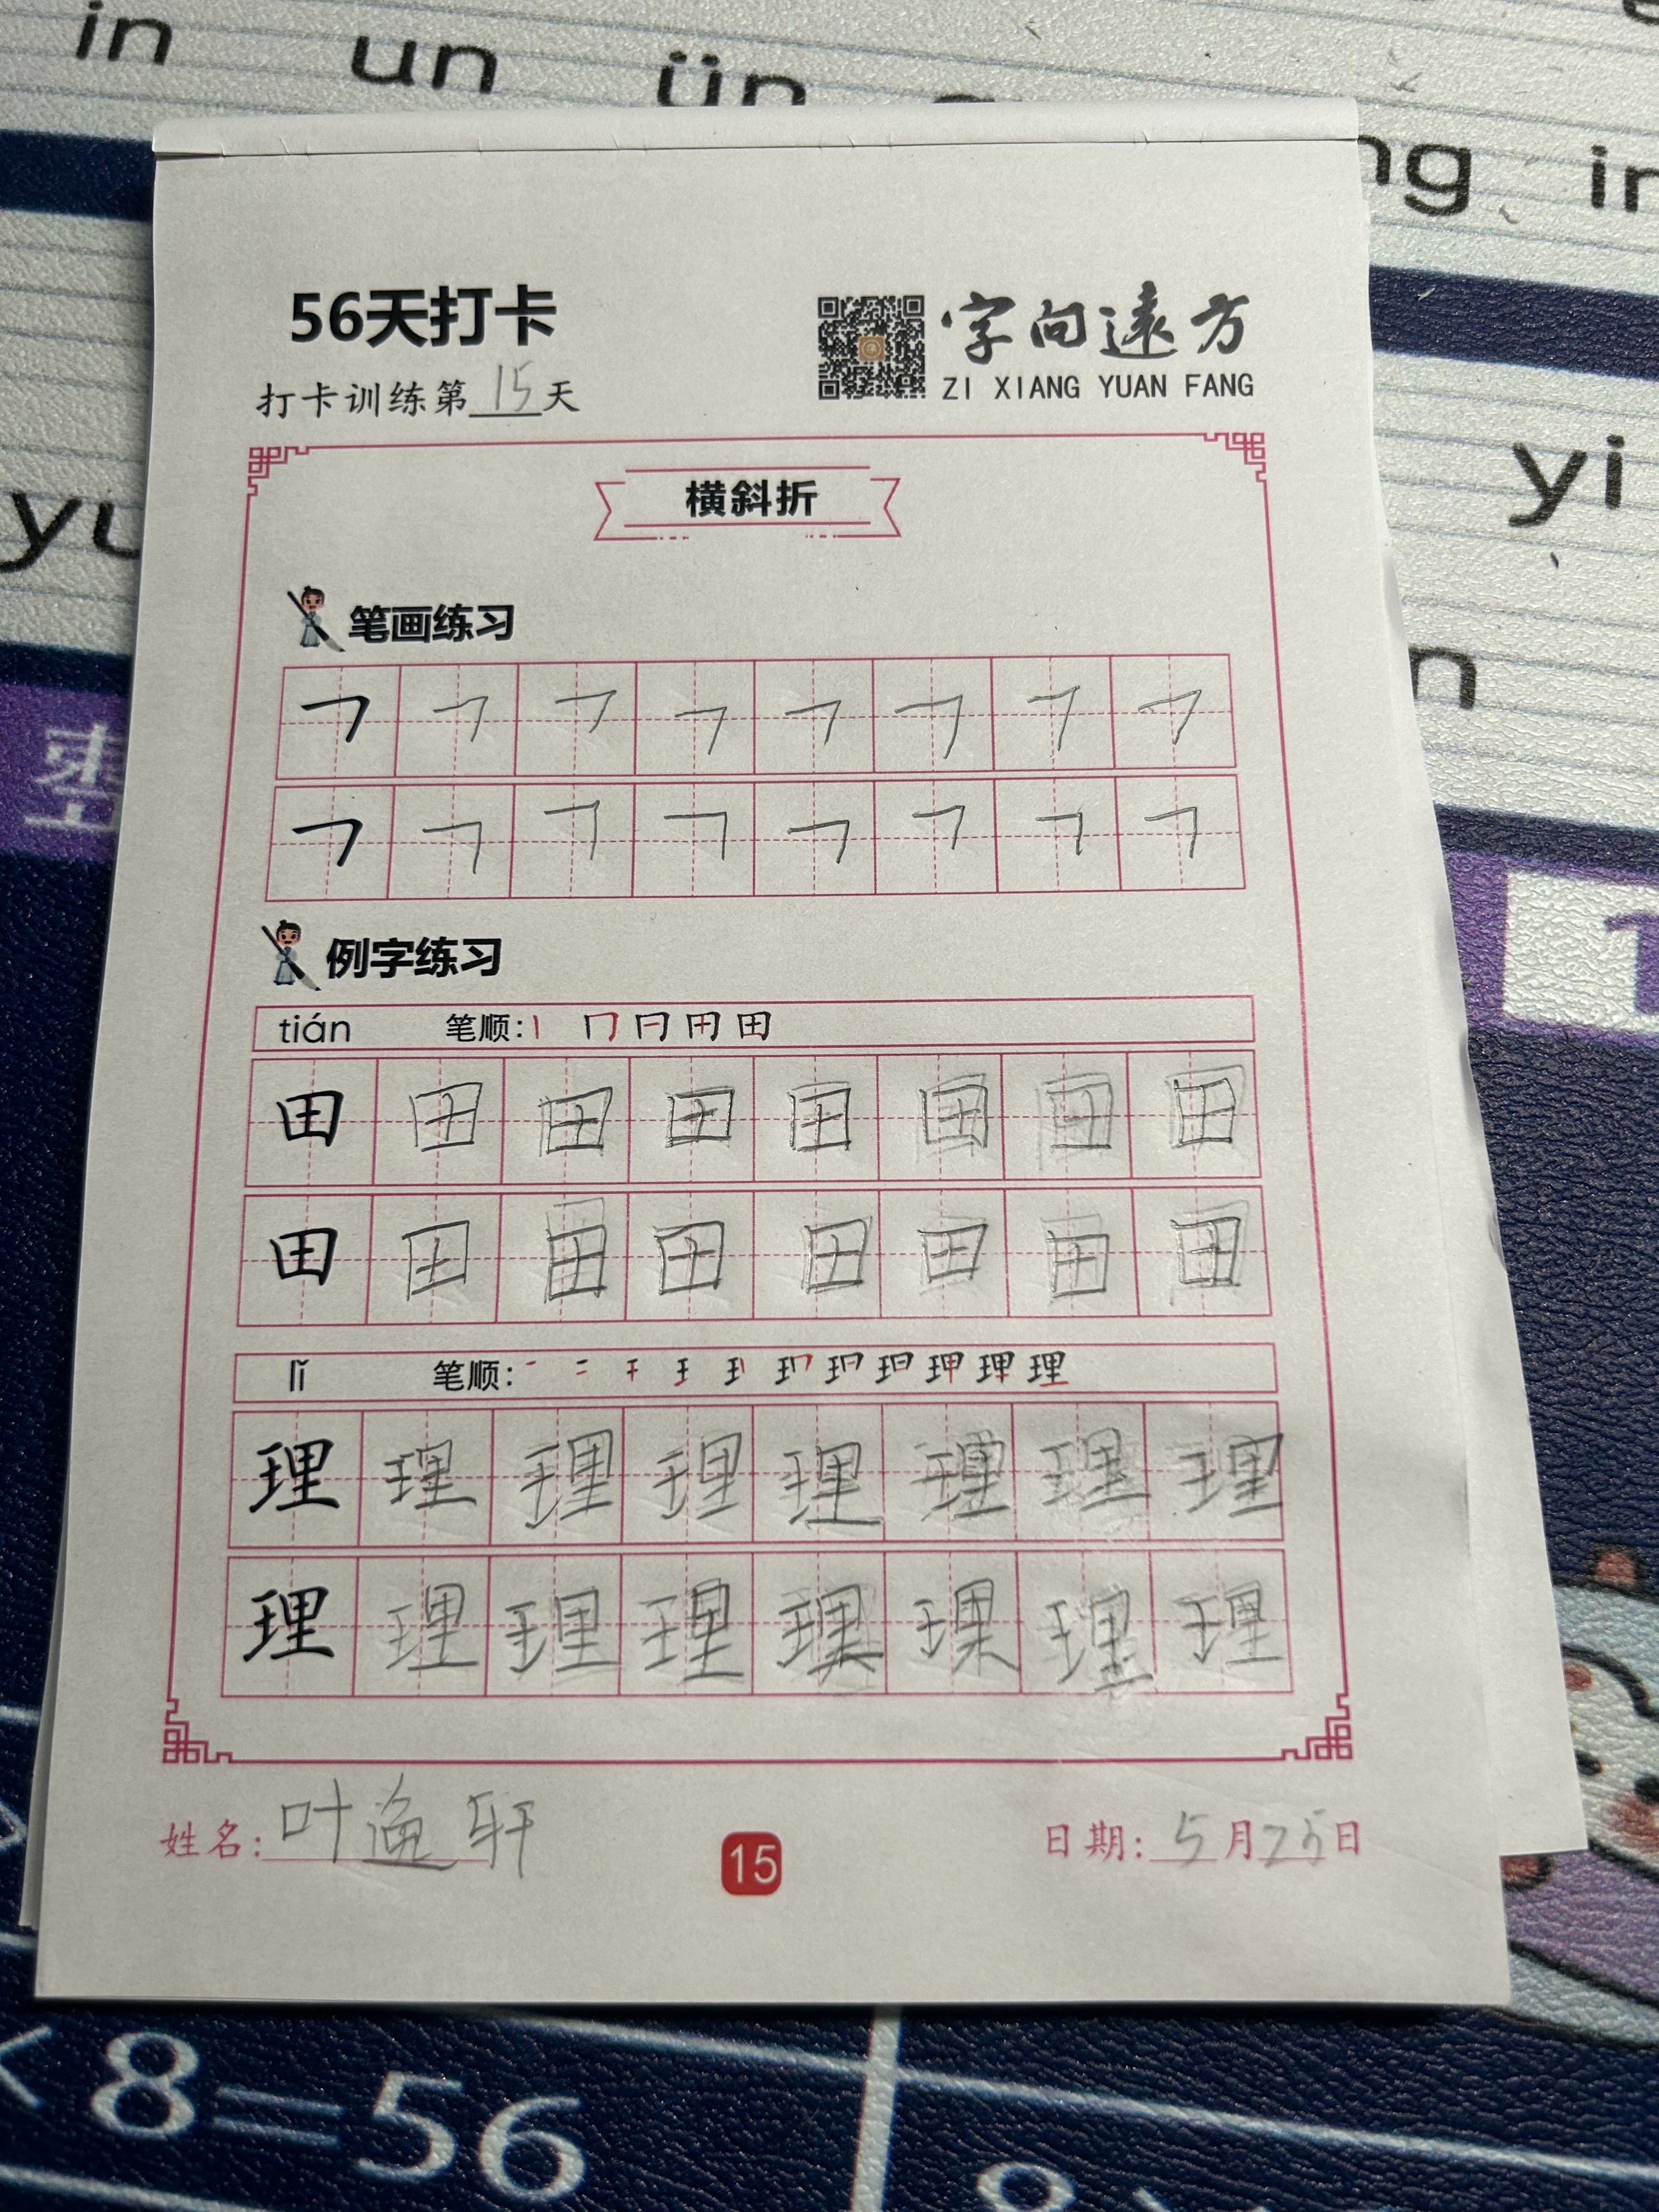 in un ün
ng in
56天打卡
字向遠方
打卡训练第15天
ZI XIANG YUAN FANG
横斜折
yi
笔画练习
例字练习
tián 笔顺:
田 田 田 田 田 田 田 田
田 田 田 田 田 田 田 田
lǐ 笔顺: 理
理 理 理 理 理 理 理 理
理 理 理 理 理 理 理 理
姓名: 叶 轩
15
日期: 5月25日
8=56
8